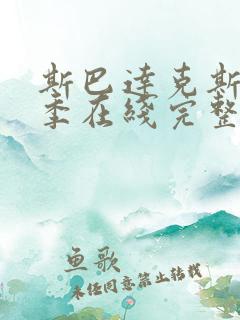 斯巴达克斯
季在线完整
鱼歌
未经同意禁止转载